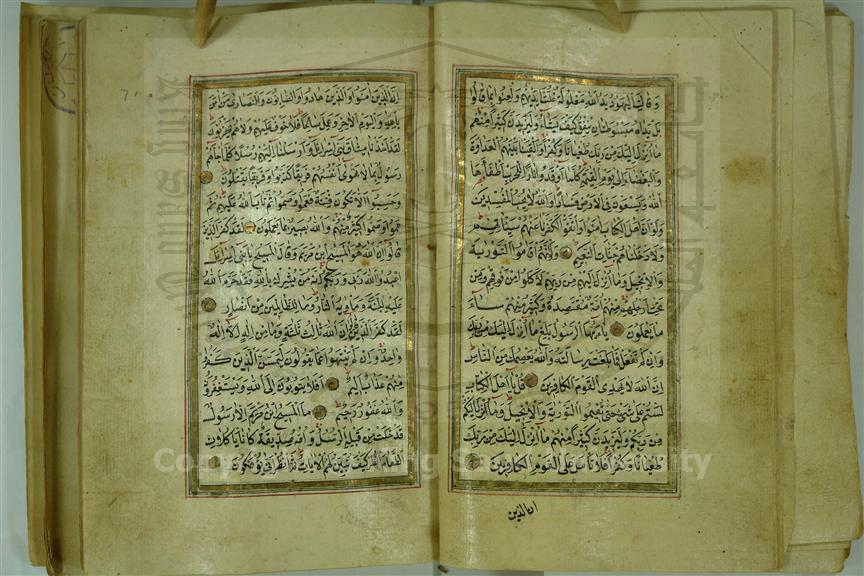 وَقَالَتِ الْيَهُودُ يَدُ اللّٰهِ مَغْلُولَةٌ غُلَّتْ اَيْدِيهِمْ وَلُعِنُوا بِمَا قَالُوا
بَلْ يَدَاهُ مَبْسُوطَتَانِ يُنْفِقُ كَيْفَ يَشَاءُ وَلَيَزِيدَنَّ كَثِيرًا مِنْهُمْ
مَا اُنْزِلَ اِلَيْكَ مِنْ رَبِّكَ طُغْيَانًا وَكُفْرًا وَاَلْقَيْنَا بَيْنَهُمُ الْعَدَاوَةَ
وَالْبَغْضَاءَ اِلَى يَوْمِ الْقِيٰمَةِ كُلَّمَا اَوْقَدُوا نَارًا لِلْحَرْبِ اَطْفَأَهَا
اللّٰهُ وَيَسْعَوْنَ فِي الْاَرْضِ فَسَادًا وَاللّٰهُ لَا يُحِبُّ الْمُفْسِدِينَ
وَلَوْ اَنَّ اَهْلَ الْكِتَابِ اٰمَنُوا وَاتَّقَوْا لَكَفَّرْنَا عَنْهُمْ سَيِّئَاتِهِمْ
وَلَاَدْخَلْنَاهُمْ جَنَّاتِ النَّعِيمِ وَلَوْ اَنَّهُمْ اَقَامُوا التَّوْرٰيةَ
وَالْاِنْجِيلَ وَمَا اُنْزِلَ اِلَيْهِمْ مِنْ رَبِّهِمْ لَاَكَلُوا مِنْ فَوْقِهِمْ وَمِنْ
تَحْتِ اَرْجُلِهِمْ مِنْهُمْ اُمَّةٌ مُقْتَصِدَةٌ وَكَثِيرٌ مِنْهُمْ سَاءَ
مَا يَعْمَلُونَ يَا اَيُّهَا الرَّسُولُ بَلِّغْ مَا اُنْزِلَ اِلَيْكَ مِنْ رَبِّكَ
وَاِنْ لَمْ تَفْعَلْ فَمَا بَلَّغْتَ رِسَالَتَهُ وَاللّٰهُ يَعْصِمُكَ مِنَ النَّاسِ
اِنَّ اللّٰهَ لَا يَهْدِي الْقَوْمَ الْكَافِرِينَ قُلْ يَا اَهْلَ الْكِتَابِ
لَسْتُمْ عَلَى شَيْءٍ حَتَّى تُقِيمُوا التَّوْرٰيةَ وَالْاِنْجِيلَ وَمَا اُنْزِلَ اِلَيْكُمْ
مِنْ رَبِّكُمْ وَلَيَزِيدَنَّ كَثِيرًا مِنْهُمْ مَا اُنْزِلَ اِلَيْكَ مِنْ رَبِّكَ
طُغْيَانًا وَكُفْرًا فَلَا تَأْسَ عَلَى الْقَوْمِ الْكَافِرِينَ
ان الذين
اِنَّ الَّذِينَ اٰمَنُوا وَالَّذِينَ هَادُوا وَالصَّابِؤُنَ وَالنَّصَارٰى مَنْ اٰمَنَ
بِاللّٰهِ وَالْيَوْمِ الْاٰخِرِ وَعَمِلَ صَالِحًا فَلَا خَوْفٌ عَلَيْهِمْ وَلَا هُمْ يَحْزَنُونَ
لَقَدْ اَخَذْنَا مِيثَاقَ بَنِي اِسْرَائِلَ وَاَرْسَلْنَا اِلَيْهِمْ رُسُلًا كُلَّمَا جَاءَهُمْ
رَسُولٌ بِمَا لَا تَهْوٰى اَنْفُسُهُمْ فَرِيقًا كَذَّبُوا وَفَرِيقًا يَقْتُلُونَ
وَحَسِبُوا اَلَّا تَكُونَ فِتْنَةٌ فَعَمُوا وَصَمُّوا ثُمَّ تَابَ اللّٰهُ عَلَيْهِمْ ثُمَّ
عَمُوا وَصَمُّوا كَثِيرٌ مِنْهُمْ وَاللّٰهُ بَصِيرٌ بِمَا يَعْمَلُونَ لَقَدْ كَفَرَ الَّذِينَ
قَالُوا اِنَّ اللّٰهَ هُوَ الْمَسِيحُ ابْنُ مَرْيَمَ وَقَالَ الْمَسِيحُ يَا بَنِي اِسْرَائِلَ
اعْبُدُوا اللّٰهَ رَبِّي وَرَبَّكُمْ اِنَّهُ مَنْ يُشْرِكْ بِاللّٰهِ فَقَدْ حَرَّمَ اللّٰهُ
عَلَيْهِ الْجَنَّةَ وَمَأْوٰيهُ النَّارُ وَمَا لِلظَّالِمِينَ مِنْ اَنْصَارٍ
لَقَدْ كَفَرَ الَّذِينَ قَالُوا اِنَّ اللّٰهَ ثَالِثُ ثَلٰثَةٍ وَمَا مِنْ اِلٰهٍ اِلَّا اِلٰهٌ
وَاحِدٌ وَاِنْ لَمْ يَنْتَهُوا عَمَّا يَقُولُونَ لَيَمَسَّنَّ الَّذِينَ كَفَرُوا
مِنْهُمْ عَذَابٌ اَلِيمٌ اَفَلَا يَتُوبُونَ اِلَى اللّٰهِ وَيَسْتَغْفِرُونَهُ
وَاللّٰهُ غَفُورٌ رَحِيمٌ مَا الْمَسِيحُ ابْنُ مَرْيَمَ اِلَّا رَسُولٌ
قَدْ خَلَتْ مِنْ قَبْلِهِ الرُّسُلُ وَاُمُّهُ صِدِّيقَةٌ كَانَا يَأْكُلَانِ
الطَّعَامَ اُنْظُرْ كَيْفَ نُبَيِّنُ لَهُمُ الْاٰيَاتِ ثُمَّ انْظُرْ اَنَّى يُؤْفَكُونَ